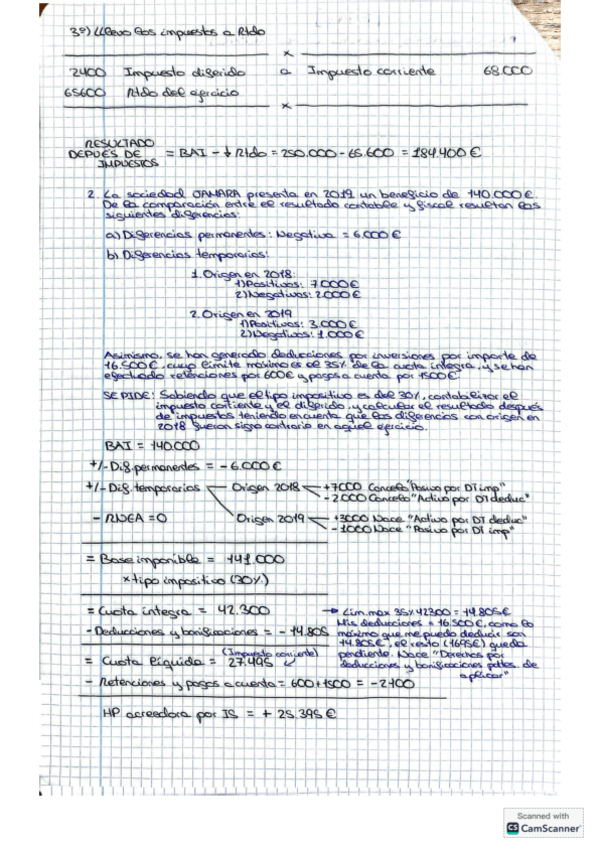 3º) Llevo los impuestos a Rtdo
x
2400 Impuesto diferido a Impuesto corriente 68.000
65600 Rtdo del ejercicio
x
RESULTADO
DEPUÉS DE = BAI - ↓ Rtdo = 250.000 - 65.600 = 184.400 €
IMPUESTOS
2. La sociedad JAMARA presenta en 2019 un beneficio de 140.000 €.
De la comparación entre el resultado contable y fiscal resultan las
siguientes diferencias:
a) Diferencias permanentes: Negativa = 6.000 €
b) Diferencias temporarias:
1. Origen en 2018:
1) Positivas: 7.000 €
2) Negativas: 2.000 €
2. Origen en 2019
1) Positivas: 3.000 €
2) Negativas: 1.000 €
Asimismo, se han generado deducciones por inversiones por importe de
16.500 €, cuyo límite máximo es el 35% de la cuota íntegra, y se han
efectuado retenciones por 600€ y pagos a cuenta por 1500 €
SE PIDE: Sabiendo que el tipo impositivo es del 30%, contabilizar el
impuesto corriente y el diferido, y calcular el resultado después
de impuestos teniendo en cuenta que las diferencias con origen en
2018 fueron signo contrario en aquel ejercicio.
BAI = 140.000
+/- Dif. permanentes = -6.000 €
+/- Dif. temporarias Origen 2018 +7000 Cancelo "Pasivo por DT imp"
-2.000 Cancelo "Activo por DT deduc"
- RNEA = 0 Origen 2019 +3000 Nace "Activo por DT deduc"
-1000 Nace "Pasivo por DT imp"
= Base imponible = 141.000
x tipo impositivo (30%)
= Cuota íntegra = 42.300 → Lím. max 35% 42300 = 14.805 €
- Deducciones y bonificaciones = - 14.805 Mis deducciones = 16.500 €, como lo
máximo que me puedo deducir son
(Impuesto corriente) 14.805 €, el resto (1695€) queda
= Cuota líquida = 27.495 pendiente. Nace "Derechos por
- Retenciones y pagos a cuenta = 600 + 1500 = -2100 deducciones y bonificaciones pdtes de
aplicar"
HP acreedora por IS = + 25.395 €
Scanned with
CS CamScanner